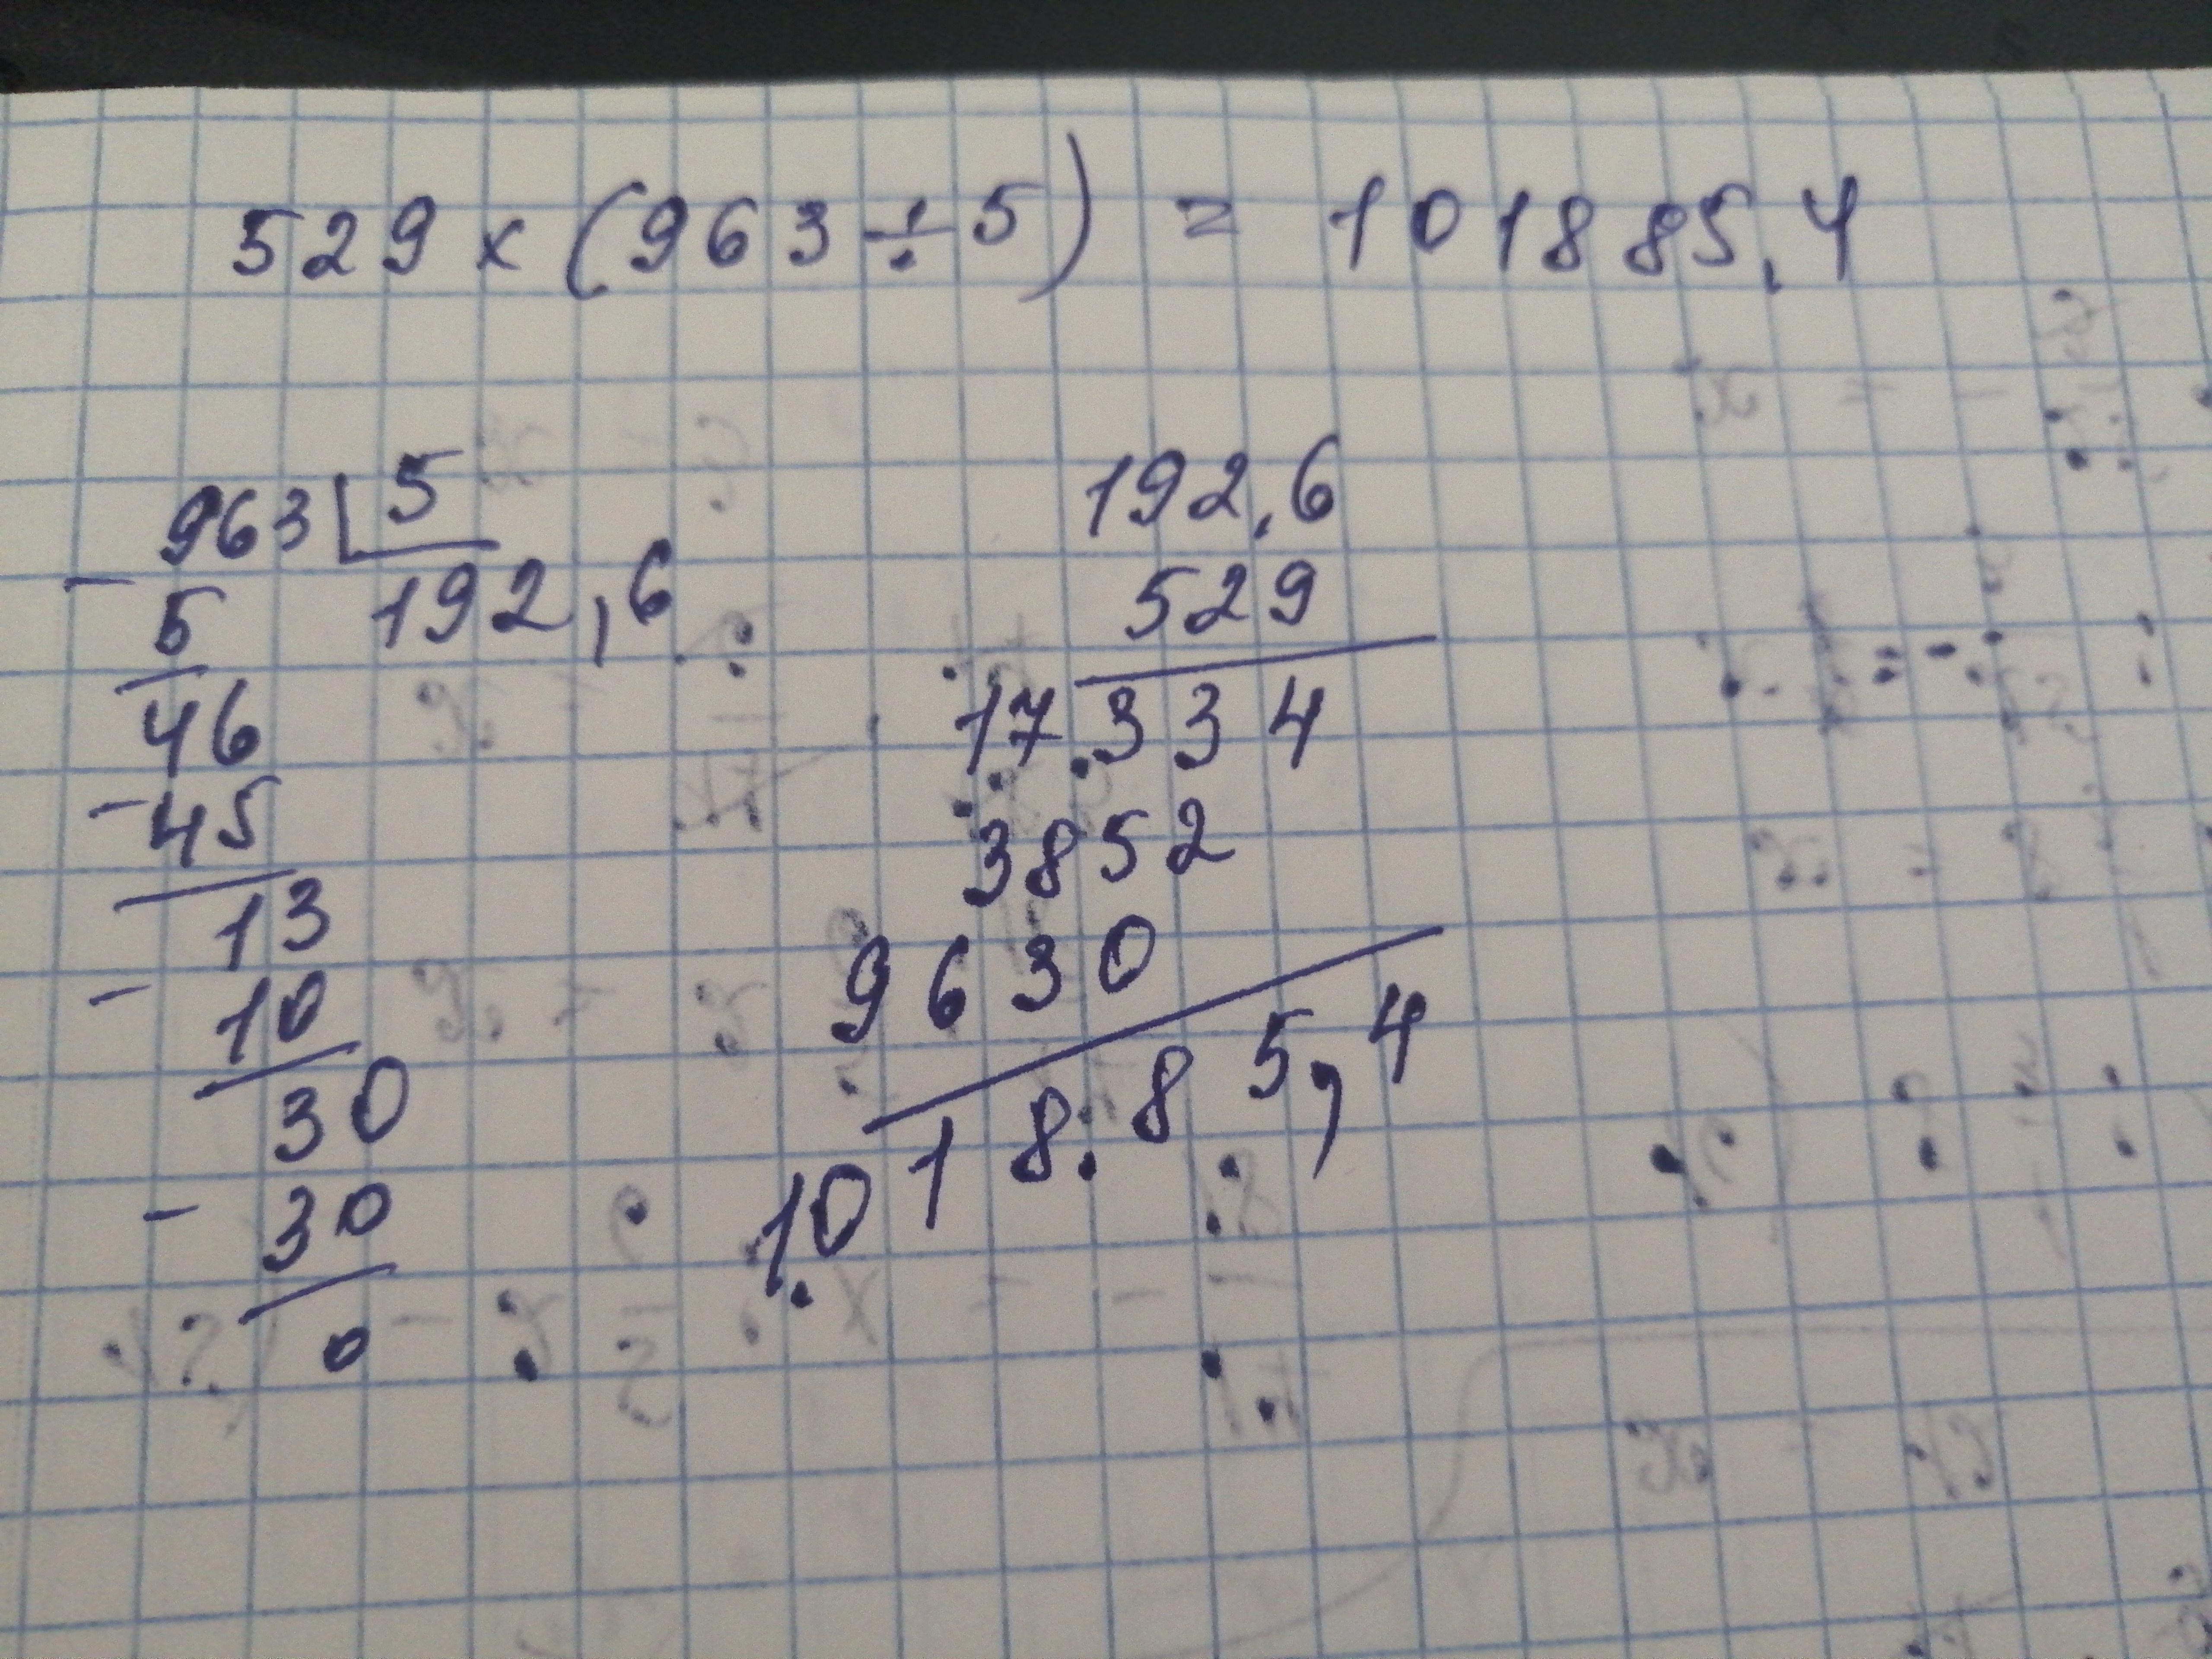 529 x (963 ÷ 5) = 101885,4
963 5
5 192,6
46
45
13
10
30
30
0
192,6
529
17334
3852
9630
101885,4